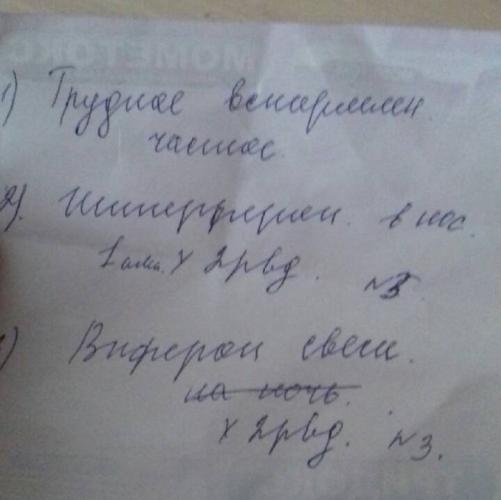 1) Грудное вскармлен.
частое.
2). Интерферон. в нос.
1 амп. х 2рвд. №5.
) Виферон свеч.
на ночь.
х 2рвд. №3.